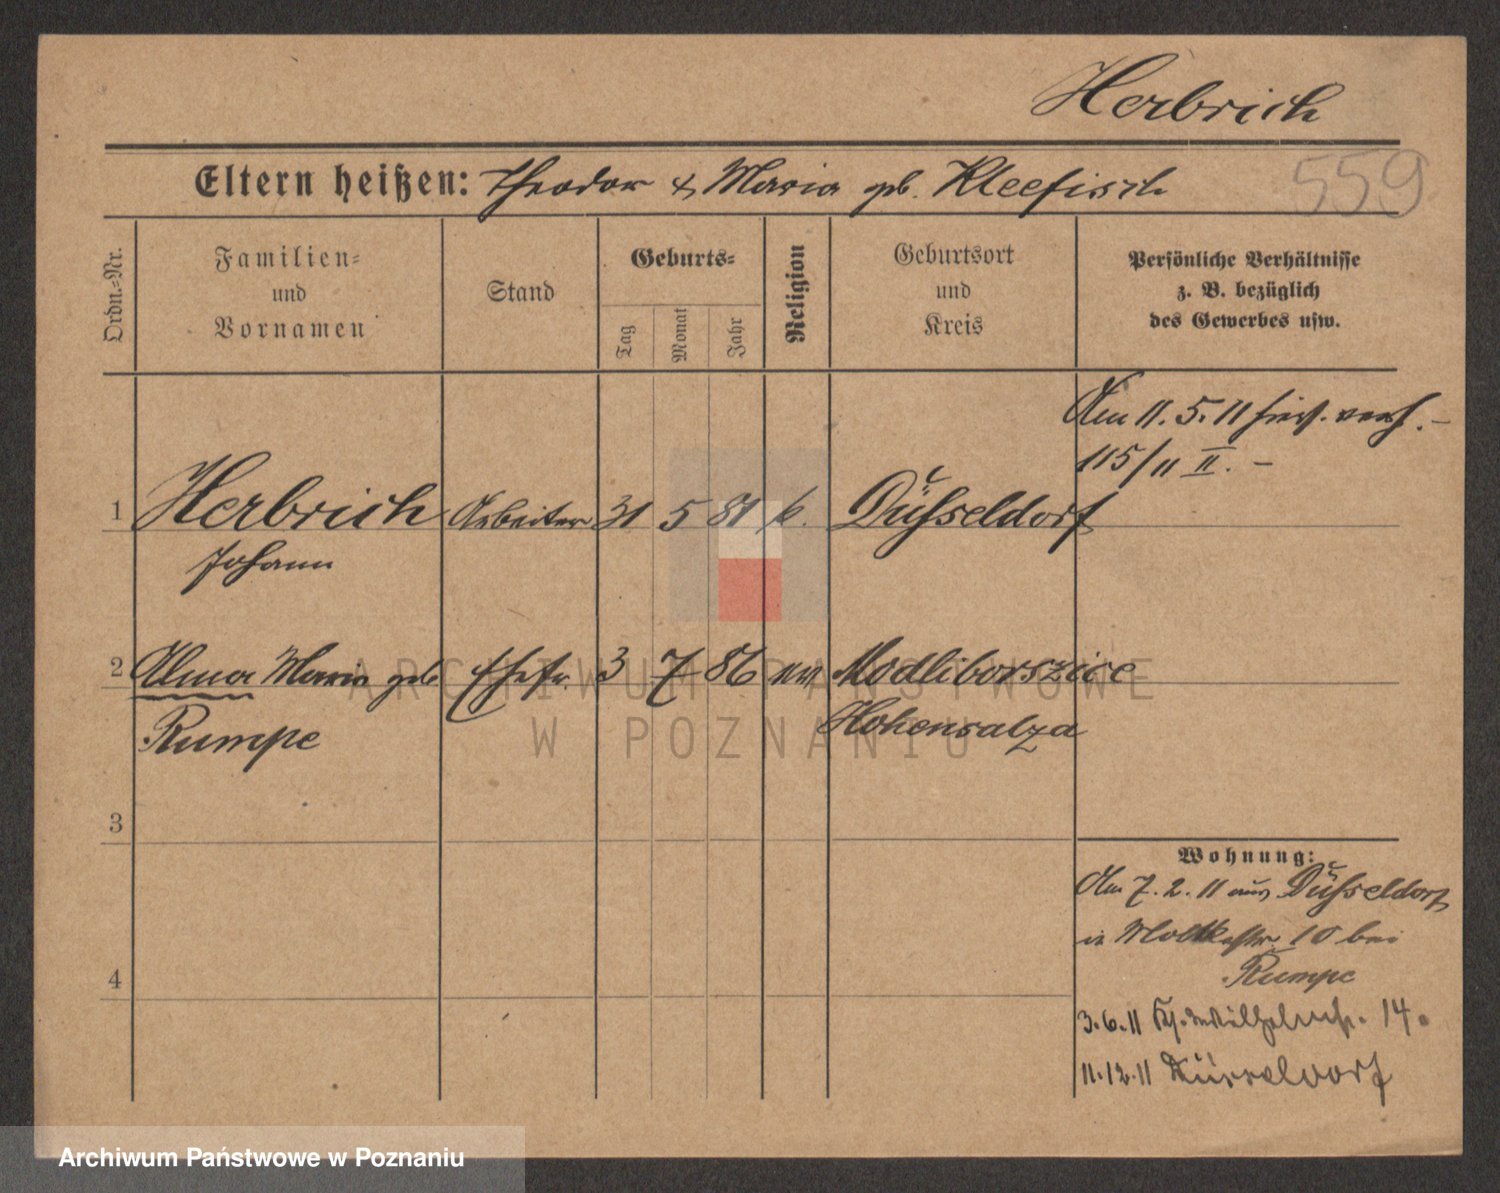 Herbrich
559
Eltern heißen: Theodor & Maria geb. Kleefisch
Ordn.-Nr.
Familien-
und
Vornamen
Stand
Geburts-
Tag
Monat
Jahr
Religion
Geburtsort
und
Kreis
Persönliche Verhältnisse
z. B. bezüglich
des Gewerbes usw.
Am 11. 5. 11 hies. verh. –
115/11 II. –
1 Herbrich Arbeiter 31 5 81 k. Düsseldorf
Johann
2 Alma Maria geb. Ehefr. 3 7 86 ev Modliborszice
Rumpe Hohensalza
3
4
Wohnung:
Am 7. 2. 11 aus Düsseldorf
in Moltkestr. 10 bei
Rumpe
3. 6. 11 14.
11. 12. 11 Düsseldorf
ARCHIWUM PAŃSTWOWE
W POZNANIU
Archiwum Państwowe w Poznaniu